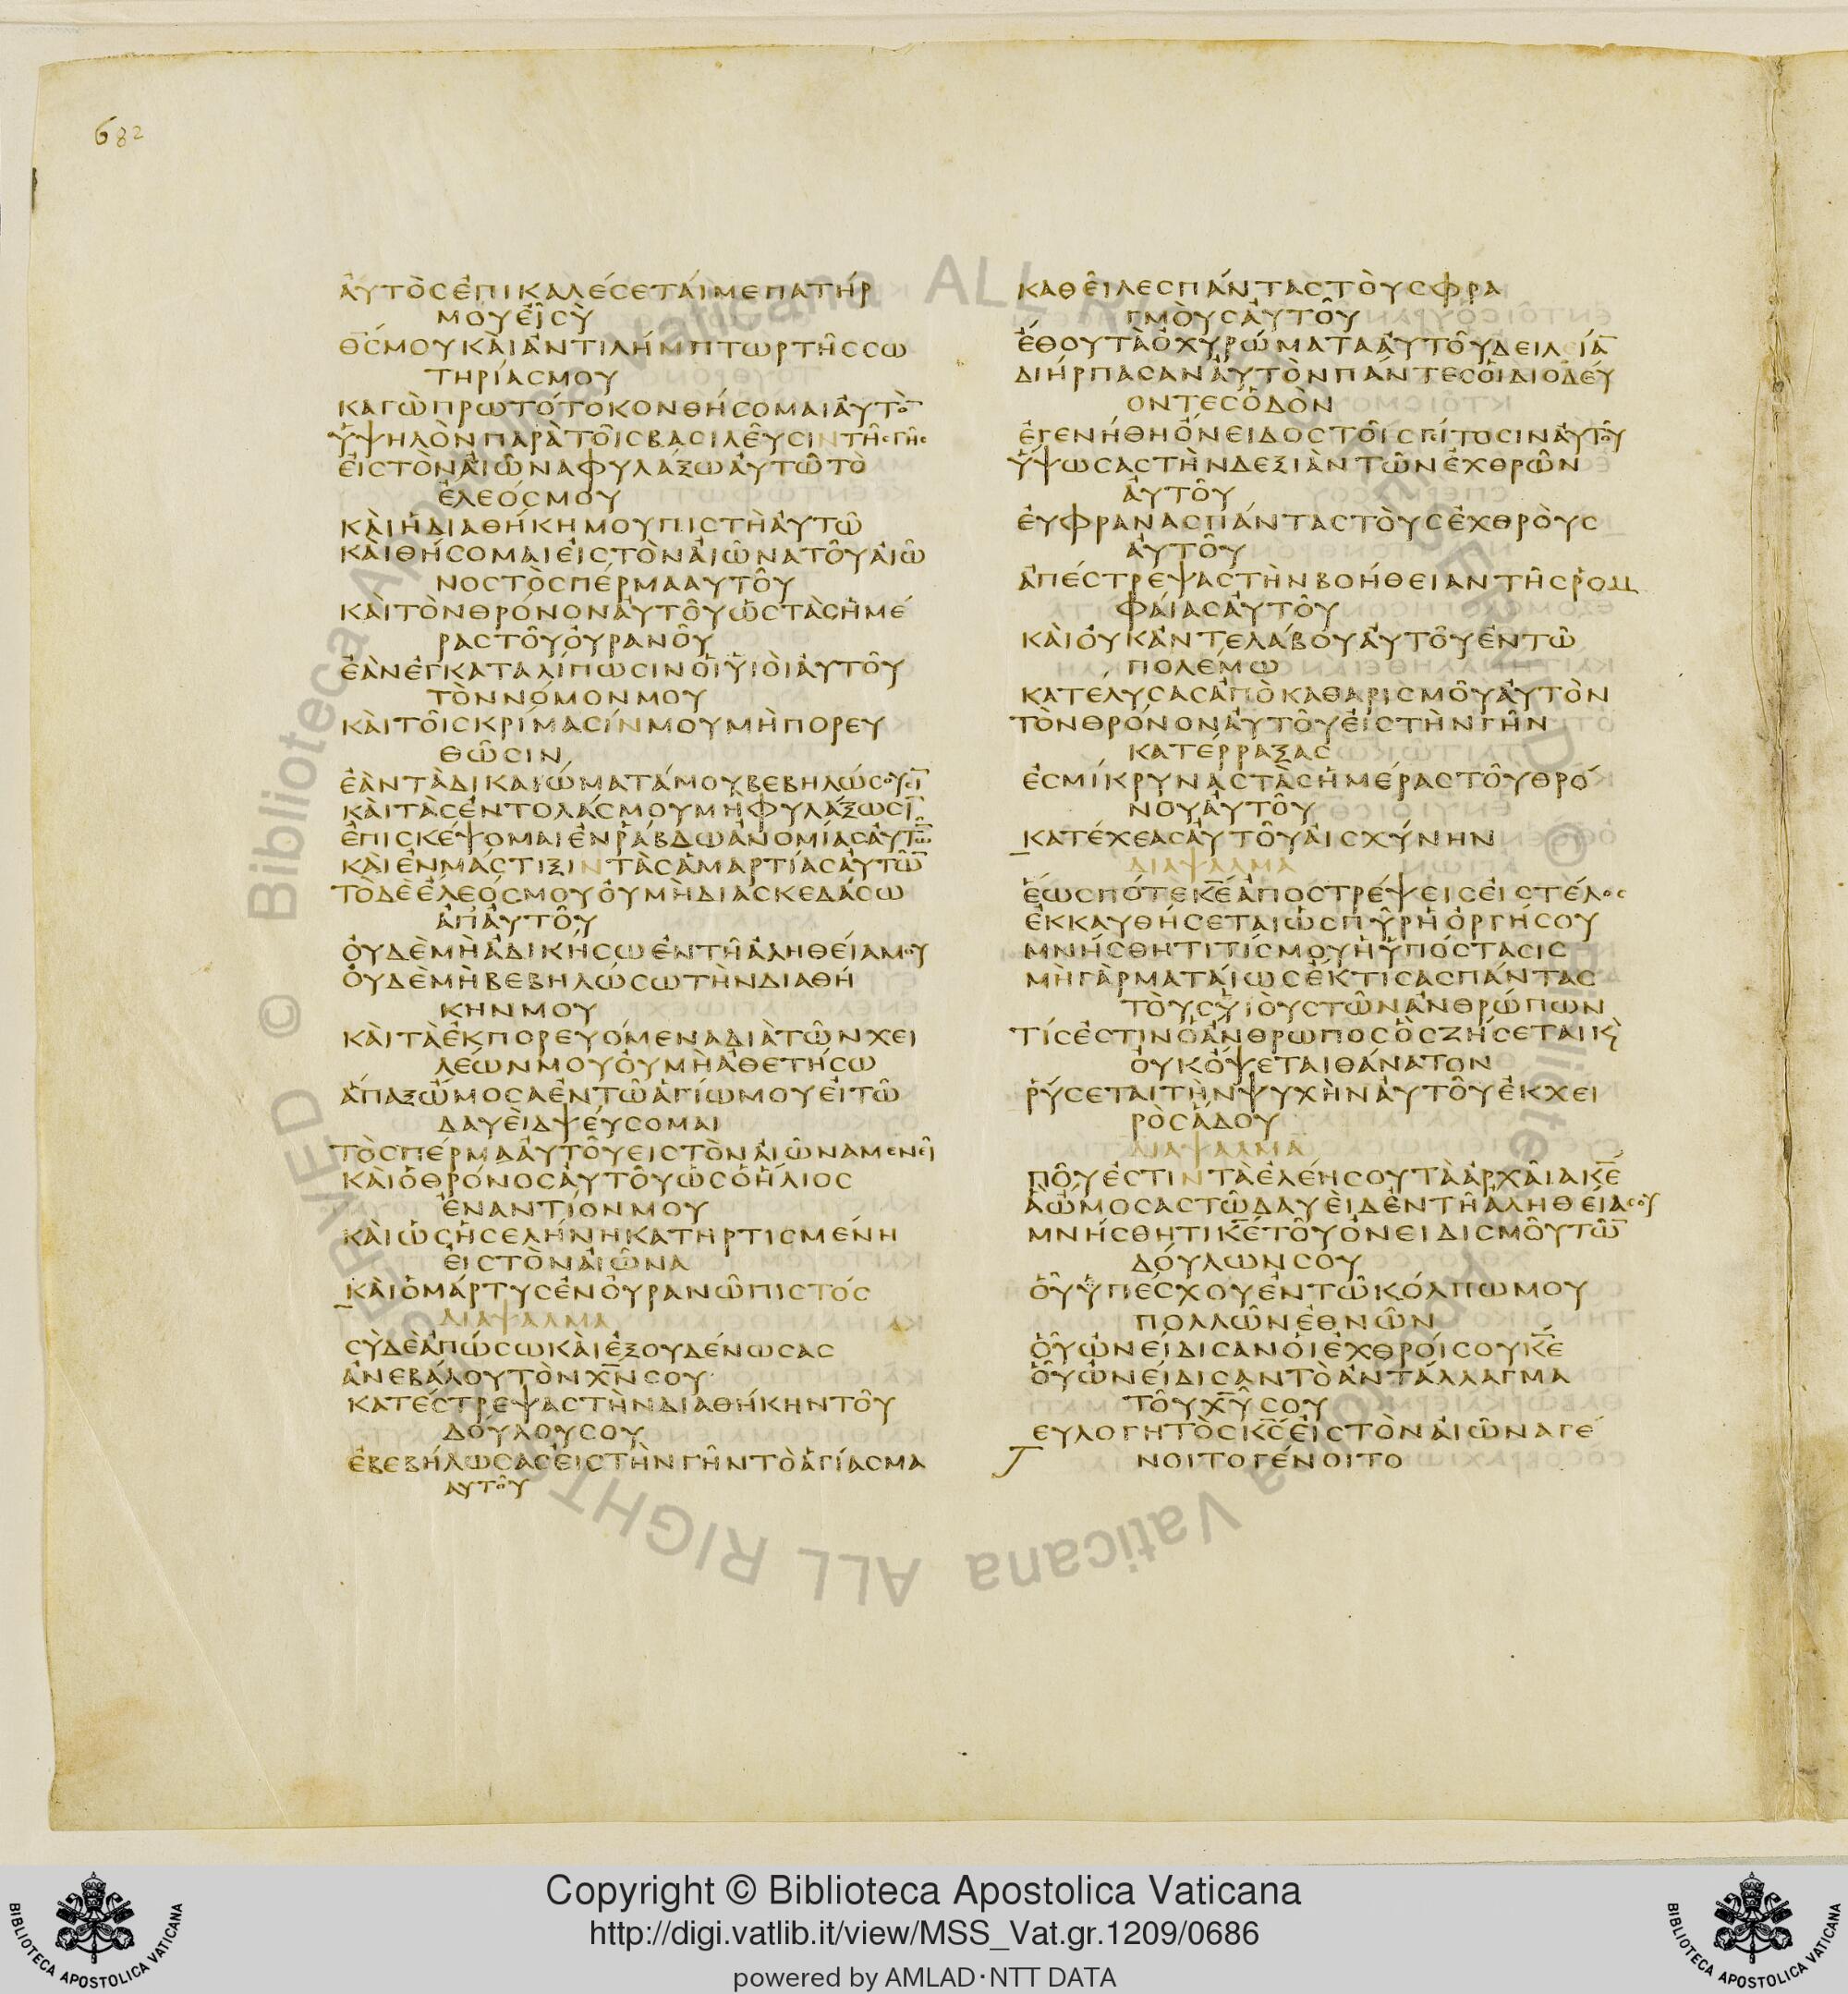 682
ἀυτὸσἐπικαλέσεταίμεπατήρ
μουεἶσὺ
θ̅σ̅μουκὰιἀντιλήμπτωρτῆσσω
τηρίασμου
καγὼπρωτότοκονθήσομαιἀυτὸ̅
ὑψηλὸνπαρὰτοῖσβασιλεῦσιντῆσγῆσ
εἰστὸναἰῶναφυλάξωἀυτῶτὸ
ἐλεόσμου
κὰιἡδιαθήκημουπιστὴἀυτῶ
κὰιθήσομαιεἰστὸναἰῶνατοῦαἰῶ
νοστὸσπέρμααυτοῦ
κὰιτὸνθρόνονἀυτοῦὡστὰσἡμέ
ραστοῦοὐρανοῦ
ἐὰνἐγκαταλίπωσινοἱὑιὸιἀυτοῦ
τὸννόμονμου
κὰιτοῖσκρίμασίνμουμὴπορευ
θῶσιν
ἐὰντὰδικαιώματάμουβεβηλώσουσι̅
κὰιτὰσἐντολάσμουμὴφυλάξωσι̅
ἐπισκέψομαιἐνῥάβδωἀνομίασἀυτῶ̅
κὰιἐνμάστιξιντὰσἁμαρτίασἀυτῶ̅
τὸδὲἐλεόσμουὀυμὴδιασκεδάσω
ἀπἀυτοῦ
ὀυδὲμὴἀδικήσωἐντῆἀληθείαμου
ὀυδὲμὴβεβηλώσωτὴνδιαθή
κηνμου
κὰιτὰἐκπορευόμεναδιὰτῶνχει
λέωνμουὀυμὴἀθετήσω
ἅπαξὤμοσαἐντῶἁγίωμουεἰτῶ
δαυεὶδψέυσομαι
τὸσπέρμαἀυτοῦειστὸναἰῶναμενεῖ
κὰιὁθρόνοσἀυτοῦὡσὁἥλιοσ
ἐναντίονμου
κὰιὡσἡσελήνηκατηρτισμένη
εἰστὸναἰῶνα
κὰιὁμάρτυσἐνὀυρανῶπιστόσ
διαψαλμα
σὺδὲἀπώσωκὰιἐξουδένωσασ
ἀνεβάλουτὸνχ̅ν̅σου
κατέστρεψαστὴνδιαθήκηντοῦ
δούλουσου
ἐβεβήλωσασεἰστὴνγῆντὸἁγίασμα
αυτοῦ
καθεῖλεσπάνταστὸυσφρα
γμὸυσἀυτοῦ
ἔθουτὰὀχυρώματαἀυτοῦδειλεία̅
διήρπασανἀυτὸνπάντεσὁιδιοδέυ
οντεσὁδὸν
ἐγενήθηὄνειδοστοῖσγείτοσινἀυτοῦ
ὕψωσαστὴνδεξιὰντῶνἐχθρῶν
ἀυτοῦ
ἐυφρανασπάνταστὸυσἐχθρὸυσ
ἀυτοῦ
ἀπέστρεψαστὴνβοήθειαντῆσῥομ
φαίασἀυτοῦ
κὰιὀυκἀντελάβουἀυτοῦἐντῶ
πολέμω
κατέλυσασἀπὸκαθαρισμοῦἀυτὸν
τὸνθρόνονἀυτοῦεἰστὴνγῆν
κατέρραξασ
ἐσμίκρυναστὰσἡμέραστοῦθρό
νουἀυτοῦ
κατέχεασἀυτοῦἀισχύνην
διαψαλμα
ἕωσπότεκ̅ε̅ἀποστρέψεισεἰστέλοσ
ἐκκαυθήσεταιὡσπῦρἡὀργήσου
μνήσθητιτίσμουἡὑπόστασισ
μὴγὰρματαίωσἔκτισασπάντασ
τὸυσὑιὸυστῶνἀνθρώπων
τίσἐστινὁἄνθρωποσὃσζήσεταικ̀
ὀυκὄψεταιθάνατον
ῥύσεταιτὴνψυχὴνἀυτοῦἐκχει
ρὸσἅδου
διαψαλμα
ποῦἐστιντὰἐλέησουτὰἀρχᾶιακ̅ε̅
ἃὤμοσαστῶδαυεὶδἐντῆἀληθείασου
μνήσθητικ̅ε̅τοῦὀνειδισμοῦτῶ̅
δόυλωνσου
ὁῦὑπέσχουἐντῶκόλπωμου
πολλῶνἐθνῶν
ὁῦὠνείδισανὁιἐχθρόισουκ̅ε̅
ὁῦὠνείδισαντὸἀντάλλαγμα
τοῦχ̅υ̅σου
ευλογητὸσκ̅σ̅εἰστὸναἰῶναγέ
νοιτογένοιτο
Copyright © Biblioteca Apostolica Vaticana
http://digi.vatlib.it/view/MSS_Vat.gr.1209/0686
powered by AMLAD·NTT DATA
BIBLIOTECA APOSTOLICA VATICANA
BIBLIOTECA APOSTOLICA VATICANA